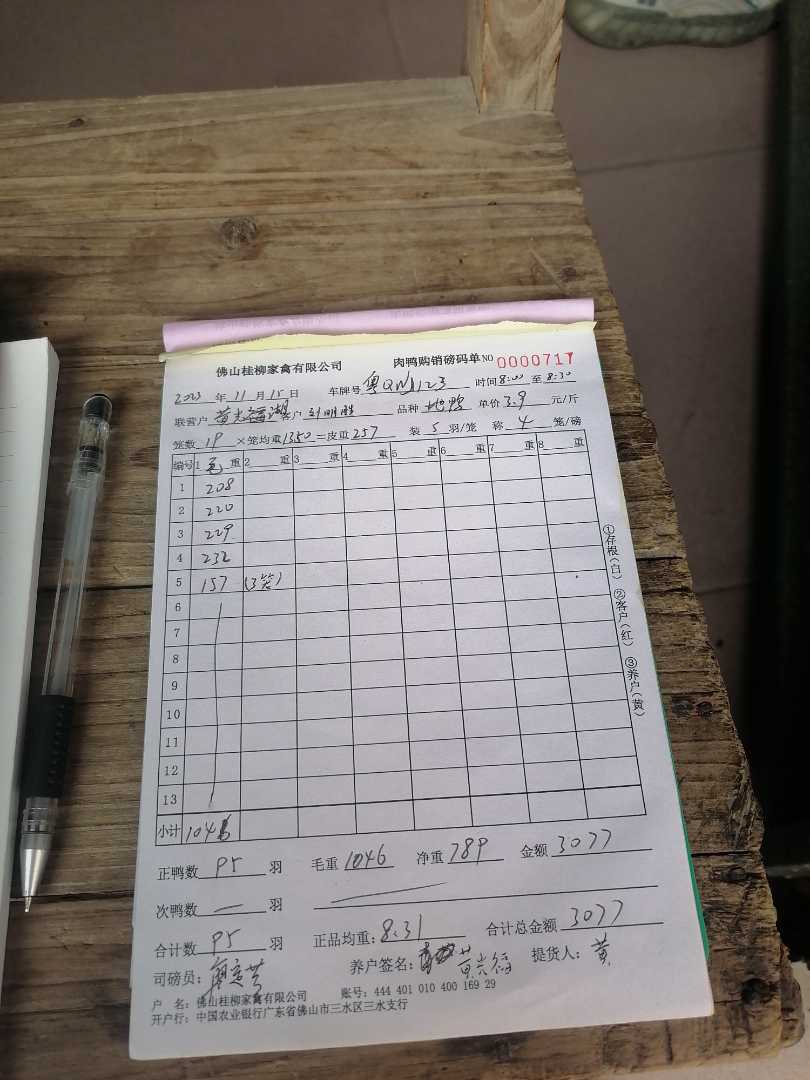 佛山桂柳家禽有限公司 肉鸭购销磅码单 NO 0000717
2023 年 11 月 15 日 车牌号 粤Q 123 时间 8:00 至 8:30
联营户 黄光福 客户 刘明胜 品种 单价 3.9 元/斤
笼数 19 ×笼均重 13.50 =皮重 257 装 5 羽/笼 称 4 笼/磅
编号 1 毛 重 2 重 3 重 4 重 5 重 6 重 7 重 8 重
1 208
2 220
3 229
4 232
5 157 (3笼)
6
7
8
9
10
11
12
13
小计 1046
正鸭数 95 羽 毛重 1046 净重 789 金额 3077
次鸭数 — 羽
合计数 95 羽 正品均重: 8.31 合计总金额 3077
司磅员: 养户签名: 黄光福 提货人: 黄
户 名: 佛山桂柳家禽有限公司 账号: 444 401 010 400 169 29
开户行: 中国农业银行广东省佛山市三水区三水支行
①存根(白) ②客户(红) ③养户(黄)